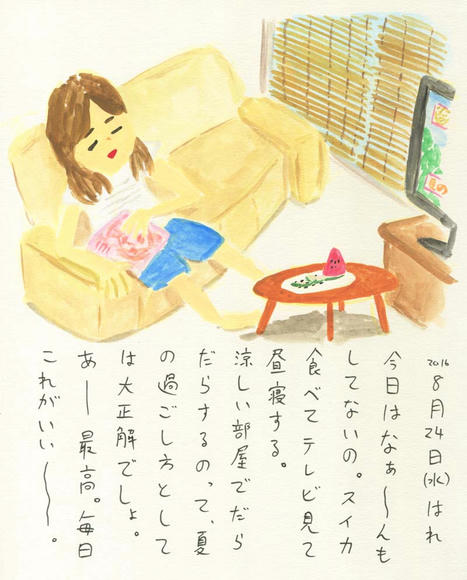 2016 8月24日(水) はれ
今日はなぁ〜んも
してないの。スイカ
食べてテレビ見て
昼寝する。
涼しい部屋でだら
だらするのって、夏
の過ごし方として
は大正解でしょ。
あー最高。毎日
これがいい〜。